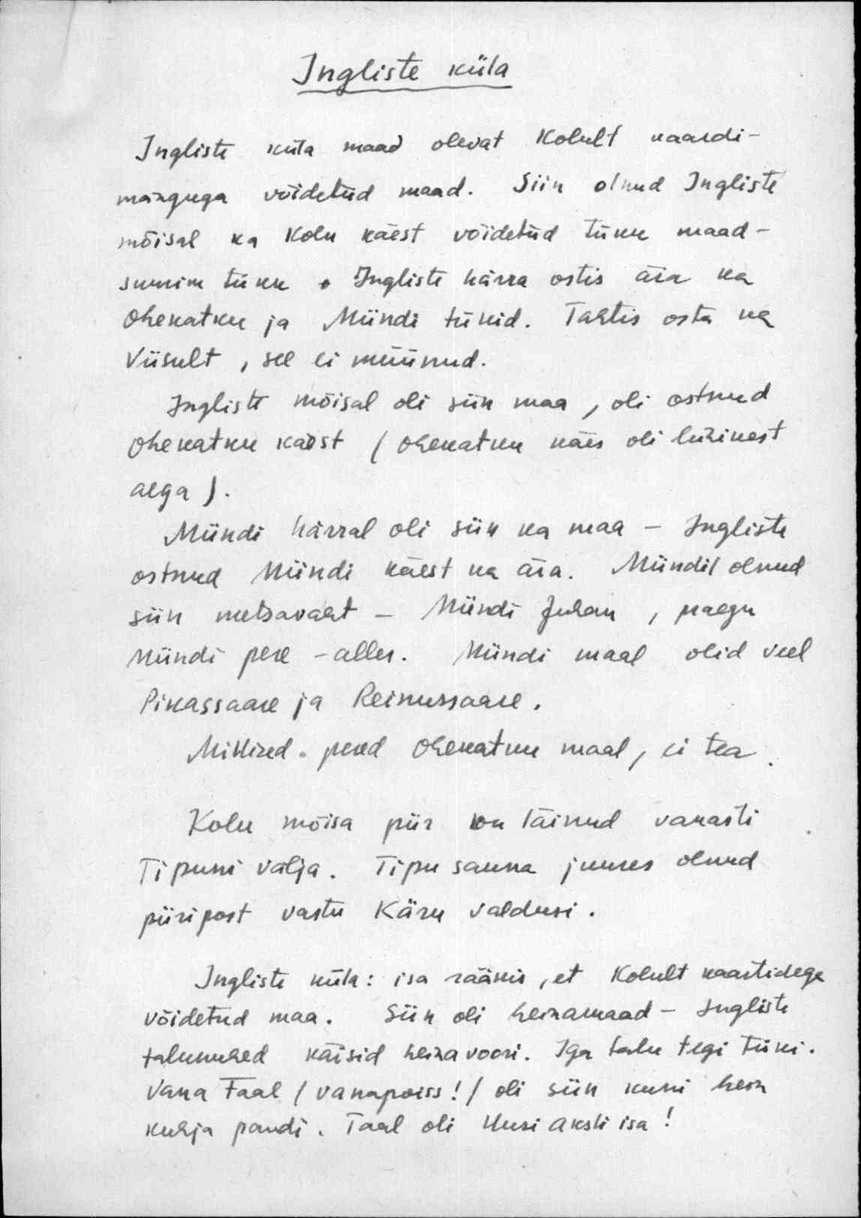 Ingliste küla
Ingliste küla maad olevat Kolult kaardi-
mänguga võidetud maad. Siin olnud Ingliste
mõisal ka Kolu käest võidetud tükk maad-
suurim tükk. Ingliste härra ostis ära ka
Ohekatku ja Mündi tükid. Tahtis osta ka
Viisult, see ei müünud.
Ingliste mõisal oli siin maa, oli ostnud
Ohekatku käest (Ohekatku käes oli lühikest
aega).
Mündi härral oli siin ka maa - Ingliste
ostnud Mündi käest ka ära. Mündil olnud
siin metsavaht - Mündi Juhan, praegu
Mündi pere - alles. Mündi maal olid veel
Pikassaare ja Reinussaare.
Millised pered Ohekatku maal, ei tea.
Kolu mõisa piir on läinud vanasti
Tipuni välja. Tipu sauna juures olnud
piiripost vastu Käru valdusi.
Ingliste küla: isa rääkis, et Kolult kaartidega
võidetud maa. Siin oli heinamaad - Ingliste
talumehed käisid heinavoori. Iga talu tegi tüki.
Vana Taal (vanapoiss!) oli siin kuni hein
kuhja pandi. Taal oli Uusi isa!